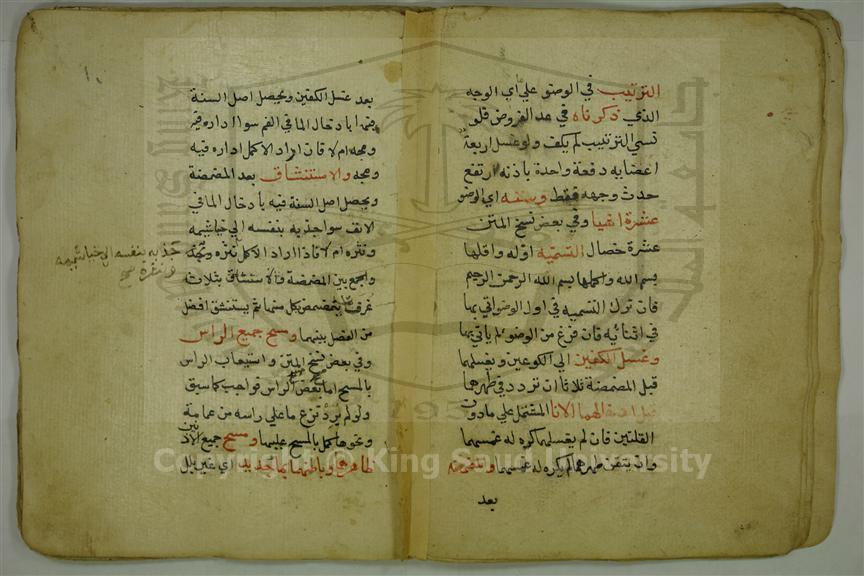 الترتيب في الوضو علي اي الوجه
الذي ذكرناه في عد الفروض فلو
نسي الترتيب لم يكف ولو غسل اربعة
اعضايه دفعة واحدة باذنه ارتفع
حدث وجهه فقط وسننه اي الوضو
عشرة اشيا وفي بعض نسخ المتن
عشرة خصال التسمية اوله واقلها
بسم الله واكملها بسم الله الرحمن الرحيم
فان ترك التسميه في اول الوضو اتي بها
في اثنايه فان فرغ من الوضو لم ياتي بها
وغسل الكفين الي الكوعين ويغسلهما
قبل المضمضة ثلاثا ان تردد في طهرهما
قبل ادخالهما الانا المشتمل علي ما دون
القلتين فان لم يغسلهما كره له غمسهما
وان تيقن طهرهما لم يكره له غمسهما والمضمضة
بعد
بعد غسل الكفين ويحصل اصل السنة
فيها بادخال الما في الفم سوا اداره فيه
ومجه ام لا فان اراد الاكمل اداره فيه
ومجه والاستنشاق بعد المضمضة
ويحصل اصل السنة فيه بادخال الما في
الانف سوا جذبه بنفسه الي خياشيمه
ونثره ام لا فاذا اراد الاكمل نثره
جذبه بنفسه الي خياشيمه
ونثره صح
والجمع بين المضمضة والاستنشاق بثلاث
غرف يتمضمض بكل منها ثم يستنشق افضل
من الفصل بينهما ومسح جميع الراس
وفي بعض نسخ المتن واستيعاب الراس
بالمسح اما بعض الراس فواجب كما سبق
ولو لم يرد نزع ما علي راسه من عمامة
ونحوها كمل بالمسح عليها ومسح جميع الاذنين
ظاهرهما وباطنهما بما جديد اي غير بلل
Copyright © King Saud University
جامعة الملك سعود
1957